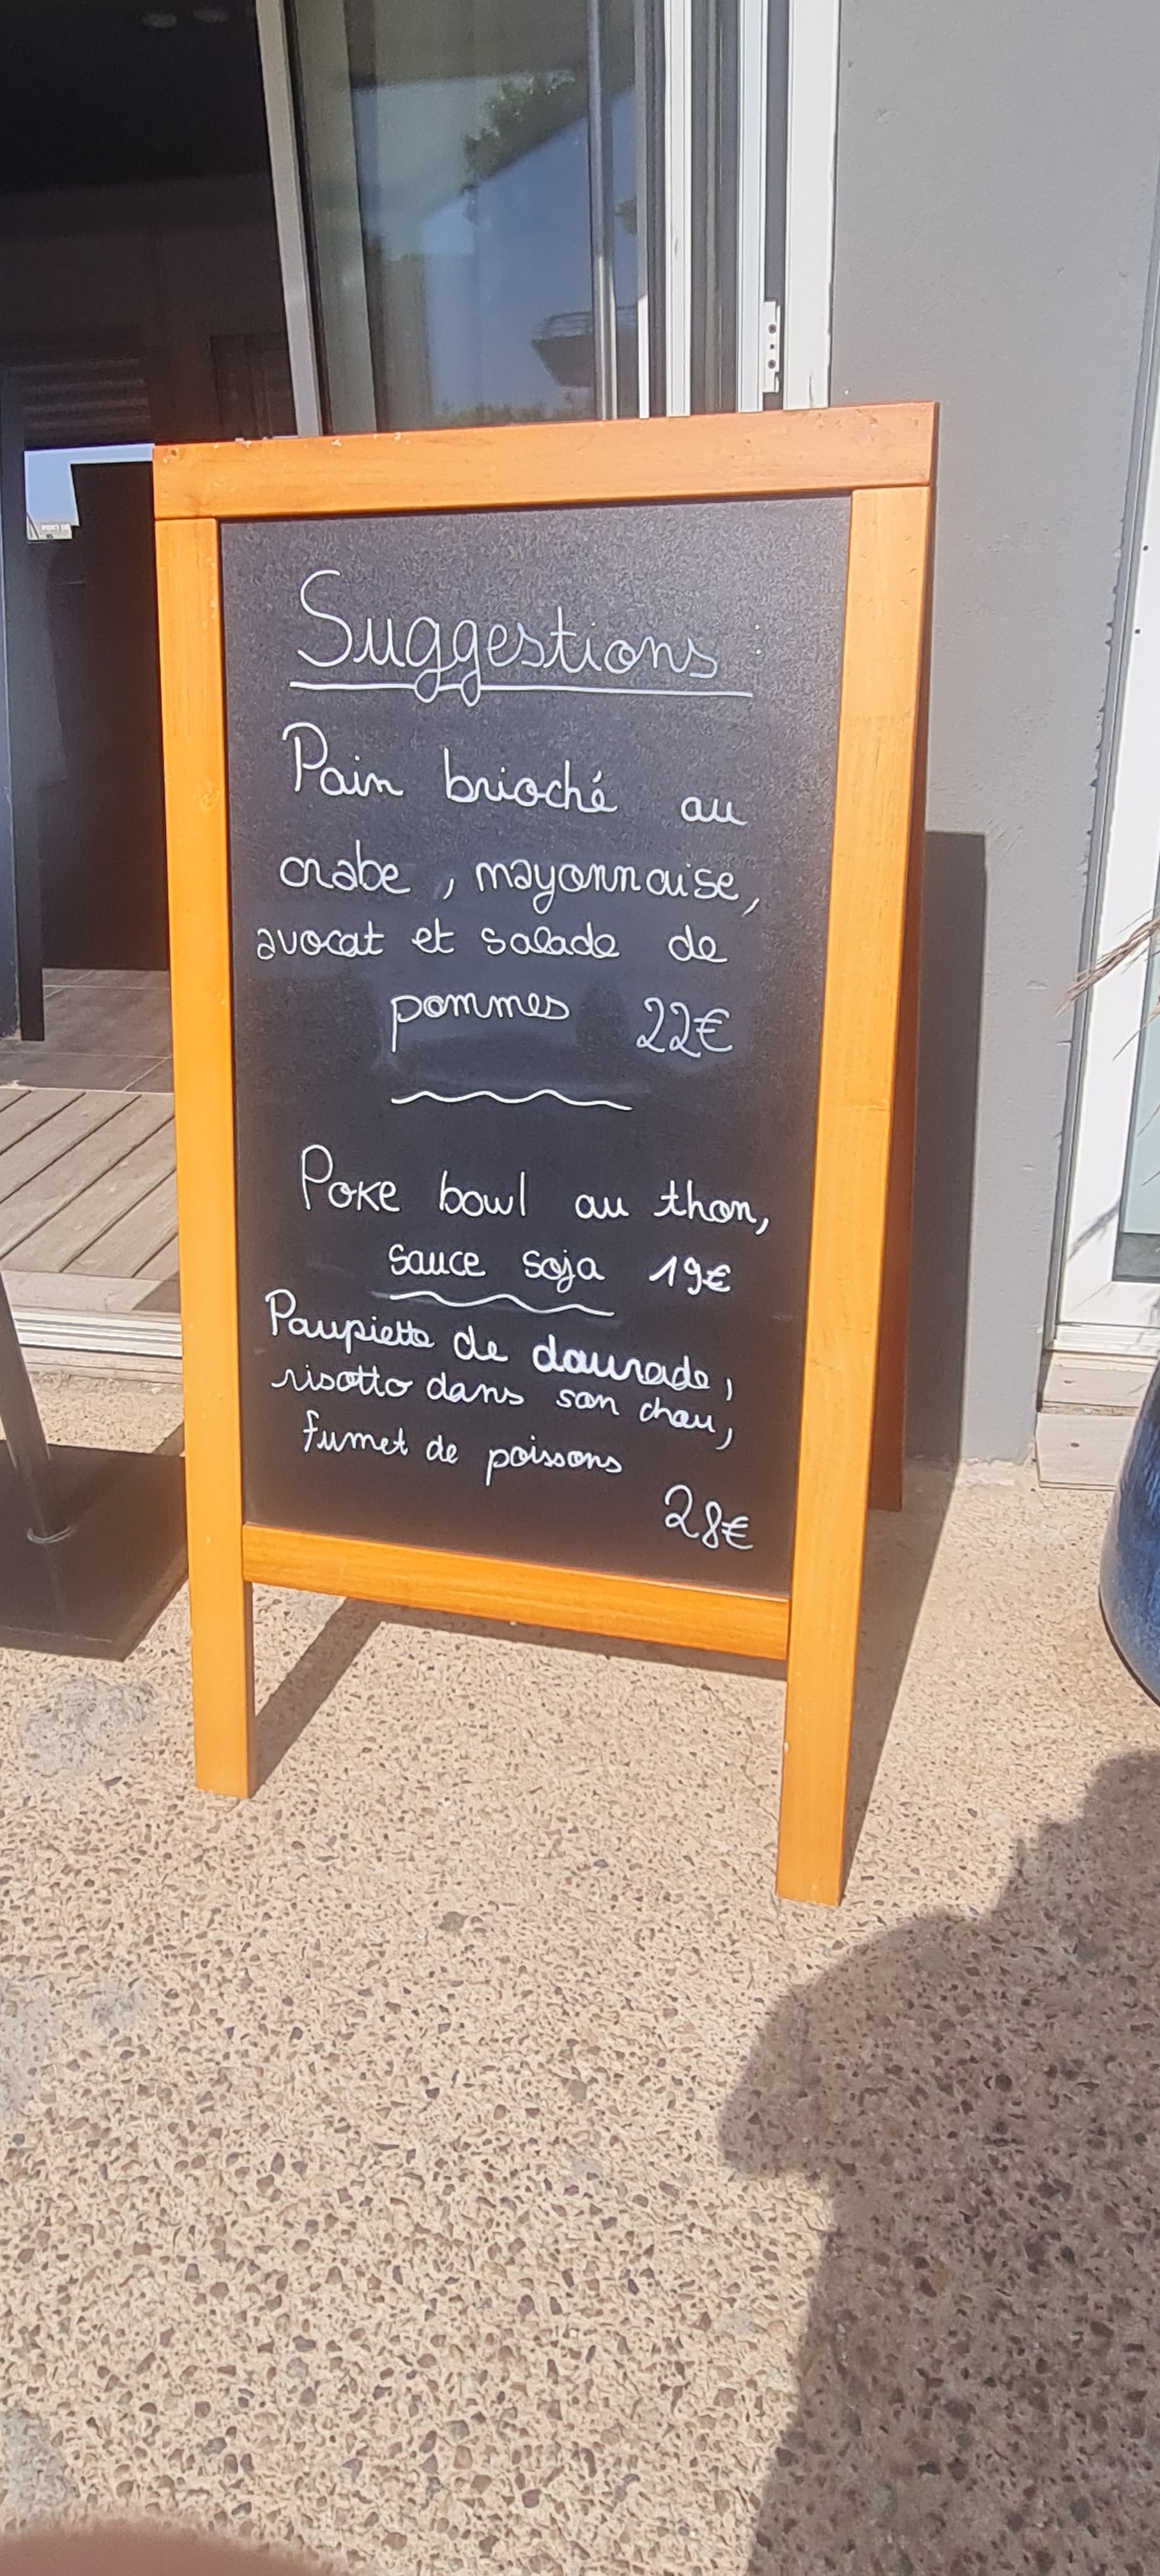 Suggestions
Pain brioché au
crabe, mayonnaise,
avocat et salade de
pommes 22€
Poke bowl au thon,
sauce soja 19€
Paupiette de daurade,
risotto dans son chou,
fumet de poissons
28€